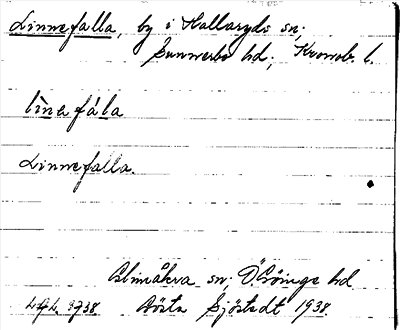 Linnefalla, by i Hallaryds sn;
Sunnerbo hd; Kronob. l.
lìnafála
Linnefalla.
Glimåkra sn; Ö. Göinge hd
Gösta Sjöstedt 1938